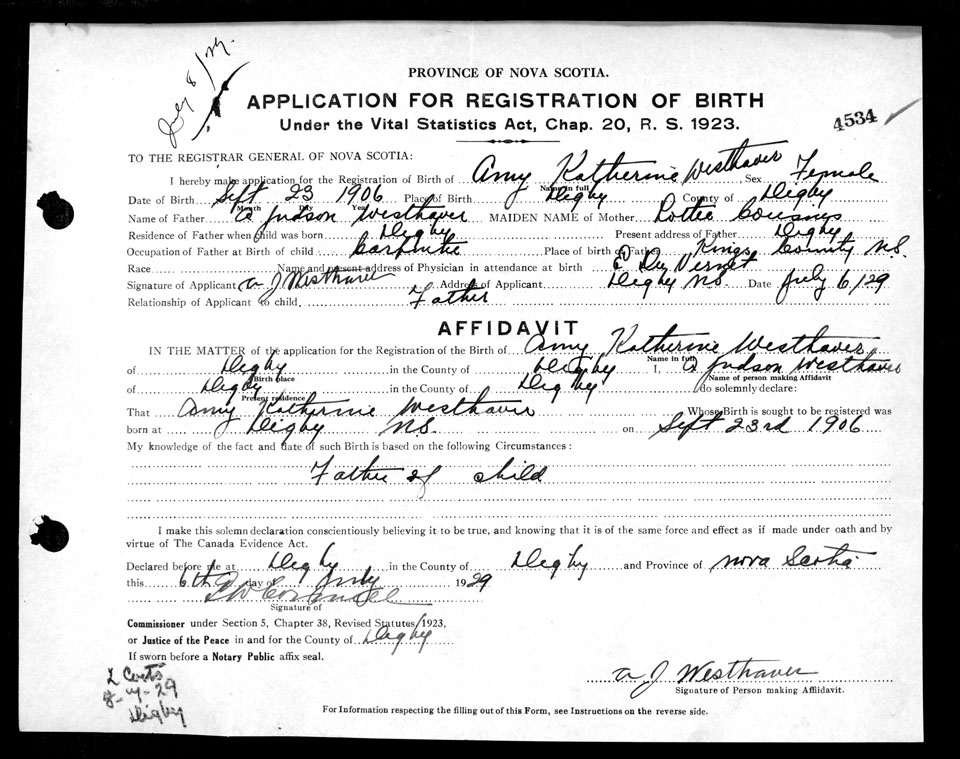 July 8/29.
PROVINCE OF NOVA SCOTIA.
APPLICATION FOR REGISTRATION OF BIRTH
Under the Vital Statistics Act, Chap. 20, R. S. 1923.
4534
TO THE REGISTRAR GENERAL OF NOVA SCOTIA:
I hereby make application for the Registration of Birth of Amy Katherine Westhaver Sex Female
Name in full
Date of Birth Sept 23 1906 Place of Birth Digby County of Digby
Month Day Year
Name of Father A Judson Westhaver MAIDEN NAME of Mother Lottie
Residence of Father when child was born Digby Present address of Father Digby
Occupation of Father at Birth of child Carpenter Place of birth of Father Kings County N.S.
Race Name and present address of Physician in attendance at birth
Signature of Applicant A J Westhaver Address of Applicant Digby N.S. Date July 6/29
Relationship of Applicant to child. Father
AFFIDAVIT
IN THE MATTER of the application for the Registration of the Birth of Amy Katherine Westhaver
Name in full
of Digby in the County of Digby I, A Judson Westhaver
Birth place Name of person making Affidavit
of Digby in the County of Digby do solemnly declare:
Present residence
That Amy Katherine Westhaver Whose Birth is sought to be registered was
born at Digby N.S. on Sept 23rd 1906
My knowledge of the fact and date of such Birth is based on the following Circumstances:
Father of child
I make this solemn declaration conscientiously believing it to be true, and knowing that it is of the same force and effect as if made under oath and by
virtue of The Canada Evidence Act.
Declared before me at Digby in the County of Digby and Province of Nova Scotia
this 6th day of July 1929
Signature of
Commissioner under Section 5, Chapter 38, Revised Statutes, 1923,
or Justice of the Peace in and for the County of Digby
If sworn before a Notary Public affix seal.
8-7-29
Digby
A J Westhaver
Signature of Person making Affidavit.
For Information respecting the filling out of this Form, see Instructions on the reverse side.